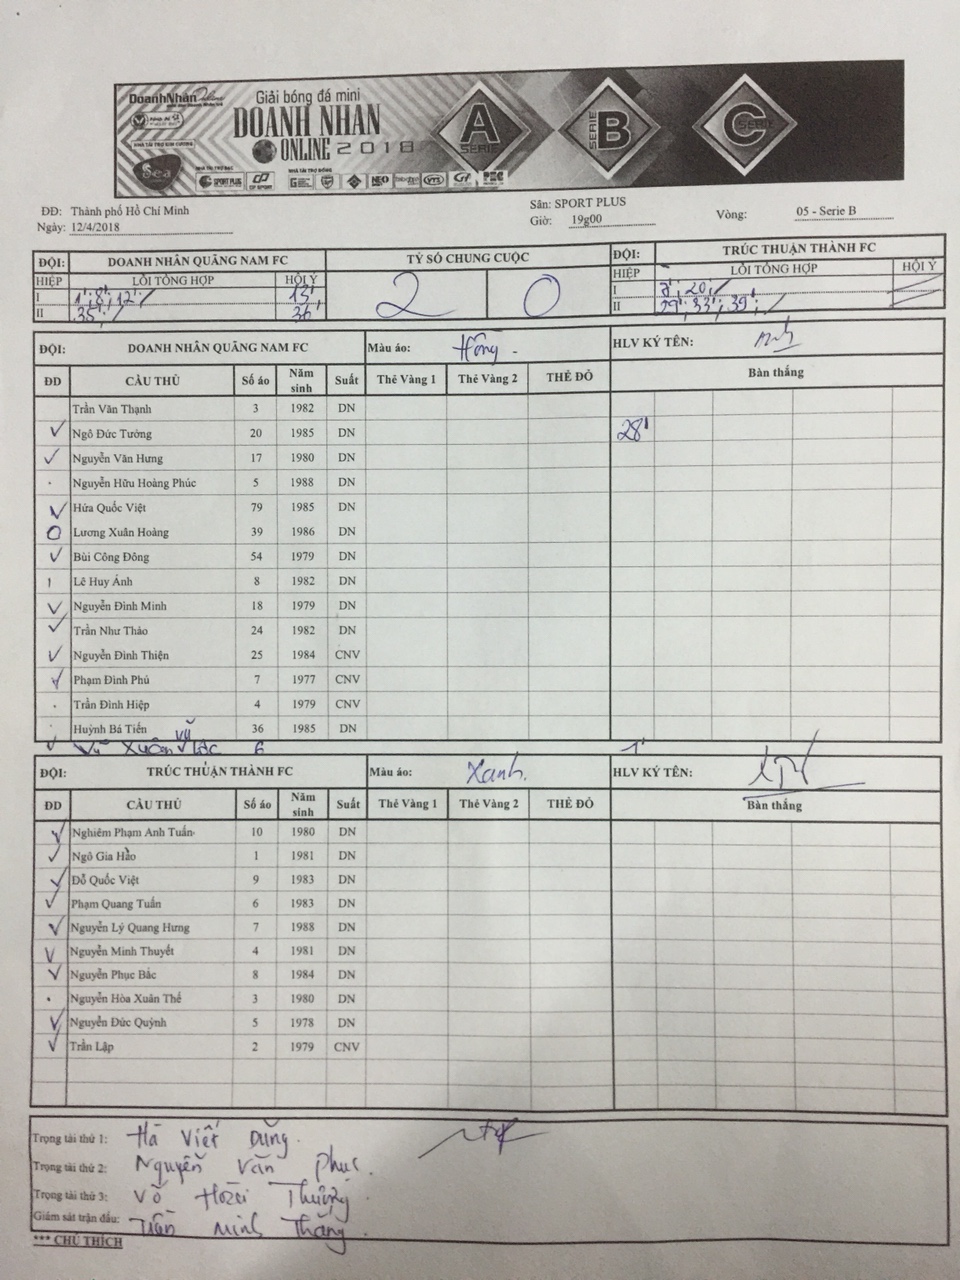 DoanhNhân Online
Giải bóng đá mini
DOANH NHAN
ONLINE 2018
A SERIE
SERIE B
C SERIE
NHÀ TÀI TRỢ KIM CƯƠNG
Sea
SPORT PLUS
NEO
VTS
ĐĐ: Thành phố Hồ Chí Minh
Sân: SPORT PLUS
Ngày: 12/4/2018
Giờ: 19g00
Vòng: 05 - Serie B
ĐỘI: DOANH NHÂN QUÃNG NAM FC TỶ SỐ CHUNG CUỘC ĐỘI: TRÚC THUẬN THÀNH FC
HIỆP LỖI TỔNG HỢP HỘI Ý 2 0 HIỆP LỖI TỔNG HỢP HỘI Ý
I 1'; 8'; 12' 13' I 20'
II 35' 36' II 29'; 33'; 39'
ĐỘI: DOANH NHÂN QUÃNG NAM FC Màu áo: Hồng HLV KÝ TÊN:
ĐD CẦU THỦ Số áo Năm sinh Suất Thẻ Vàng 1 Thẻ Vàng 2 THẺ ĐỎ Bàn thắng
Trần Văn Thạnh 3 1982 DN
Ngô Đức Tường 20 1985 DN 28'
Nguyễn Văn Hưng 17 1980 DN
Nguyễn Hữu Hoàng Phúc 5 1988 DN
Hứa Quốc Việt 79 1985 DN
Lương Xuân Hoàng 39 1986 DN
Bùi Công Đông 54 1979 DN
Lê Huy Ánh 8 1982 DN
Nguyễn Đình Minh 18 1979 DN
Trần Như Thảo 24 1982 DN
Nguyễn Đình Thiện 25 1984 CNV
Phạm Đình Phú 7 1977 CNV
Trần Đình Hiệp 4 1979 CNV
Huỳnh Bá Tiến 36 1985 DN
Vũ Xuân Lộc 6 1'
ĐỘI: TRÚC THUẬN THÀNH FC Màu áo: Xanh. HLV KÝ TÊN:
ĐD CẦU THỦ Số áo Năm sinh Suất Thẻ Vàng 1 Thẻ Vàng 2 THẺ ĐỎ Bàn thắng
Nghiêm Phạm Anh Tuấn 10 1980 DN
Ngô Gia Hảo 1 1981 DN
Đỗ Quốc Việt 9 1983 DN
Phạm Quang Tuấn 6 1983 DN
Nguyễn Lý Quang Hưng 7 1988 DN
Nguyễn Minh Thuyết 4 1981 DN
Nguyễn Phục Bắc 8 1984 DN
Nguyễn Hòa Xuân Thế 3 1980 DN
Nguyễn Đức Quỳnh 5 1978 DN
Trần Lập 2 1979 CNV
Trọng tài thứ 1: Hà Viết Dũng.
Trọng tài thứ 2: Nguyễn Văn Phục.
Trọng tài thứ 3: Võ Hoài Thương
Giám sát trận đấu: Trần Minh Thắng
*** CHÚ THÍCH